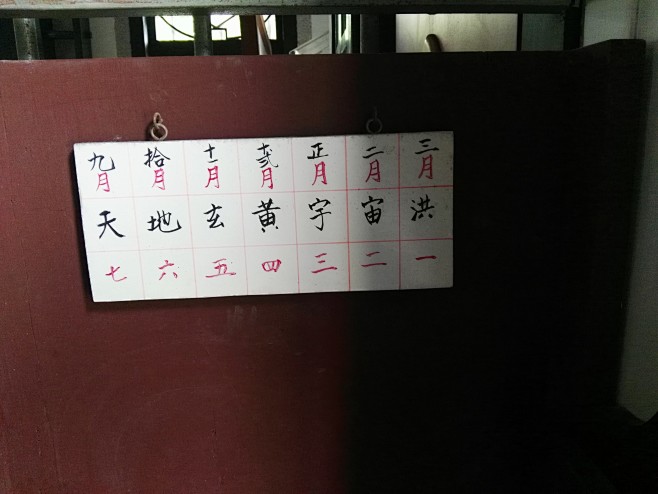 九月 拾月 十一月 十弍月 正月 二月 三月
天 地 玄 黄 宇 宙 洪
七 六 五 四 三 二 一